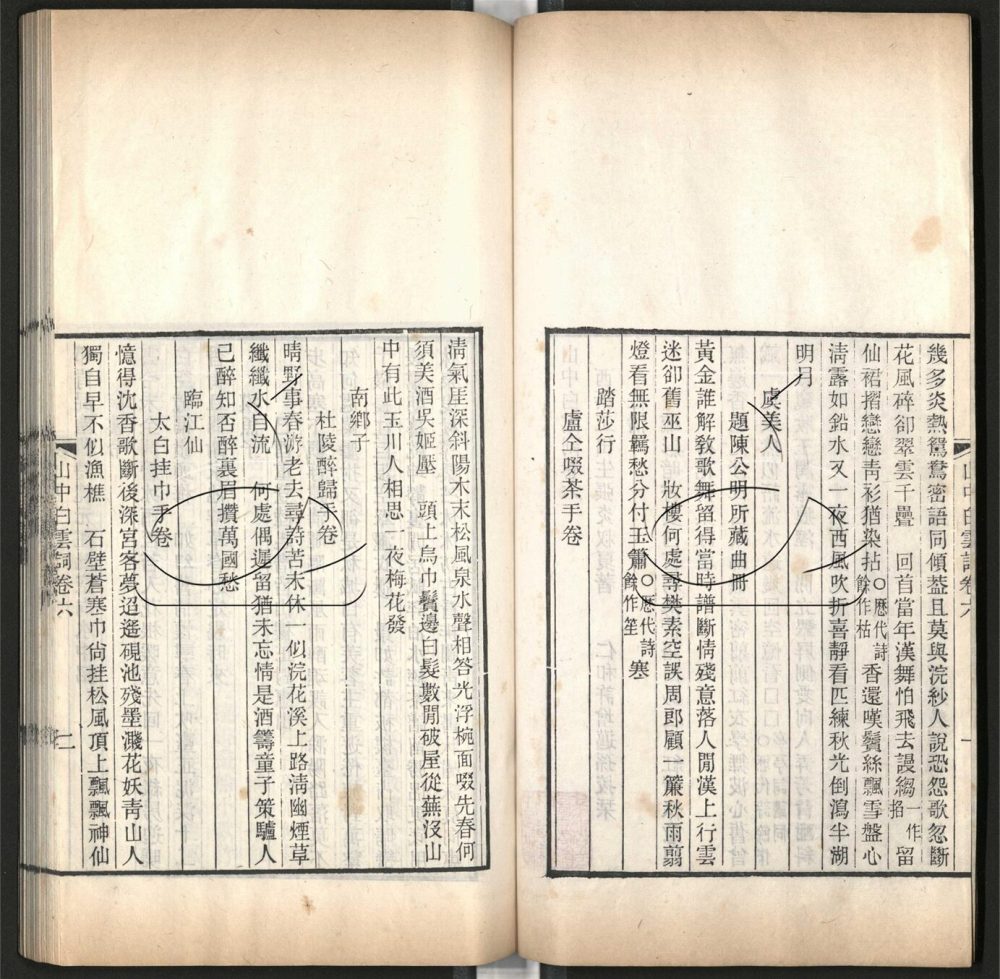 幾多炎熱鴛鴦密語同傾葢且莫與浣紗人說恐怨歌忽斷
花風碎卻翠雲千疊　回首當年漢舞怕飛去謾縐一作招留
仙裙摺戀戀青衫猶染拈○歷代詩餘作枯　香還嘆鬢絲飄雪盤心
淸露如鉛水又一夜西風吹折喜靜看匹練秋光倒瀉半湖
明月
虞美人
題陳公明所藏曲冊
黃金誰解敎歌舞留得當時譜斷情殘意落人閒漢上行雲
迷卻舊巫山　妝樓何處尋樊素空誤周郎顧一簾秋雨翦
燈看無限羈愁分付玉簫○歷代詩餘作笙寒
踏莎行
盧仝啜茶手卷
淸氣崖深斜陽木末松風泉水聲相答光浮椀面啜先春何
須美酒吳姬壓　頭上烏巾鬢邊白髮數閒破屋從蕪沒山
中有此玉川人相思一夜梅花發
南鄉子
杜陵醉歸手卷
晴野事春游老去尋詩苦未休一似浣花溪上路淸幽煙草
纖纖水自流　何處偶遲留猶未忘情是酒籌童子策驢人
已醉知否醉裏眉攢萬國愁
臨江仙
太白挂巾手卷
憶得沈香歌斷後深宮客夢迢遙硯池殘墨濺花妖靑山人
獨自早不似漁樵　石壁蒼寒巾尙挂松風頂上飄飄神仙
山中白雲詞卷六
二